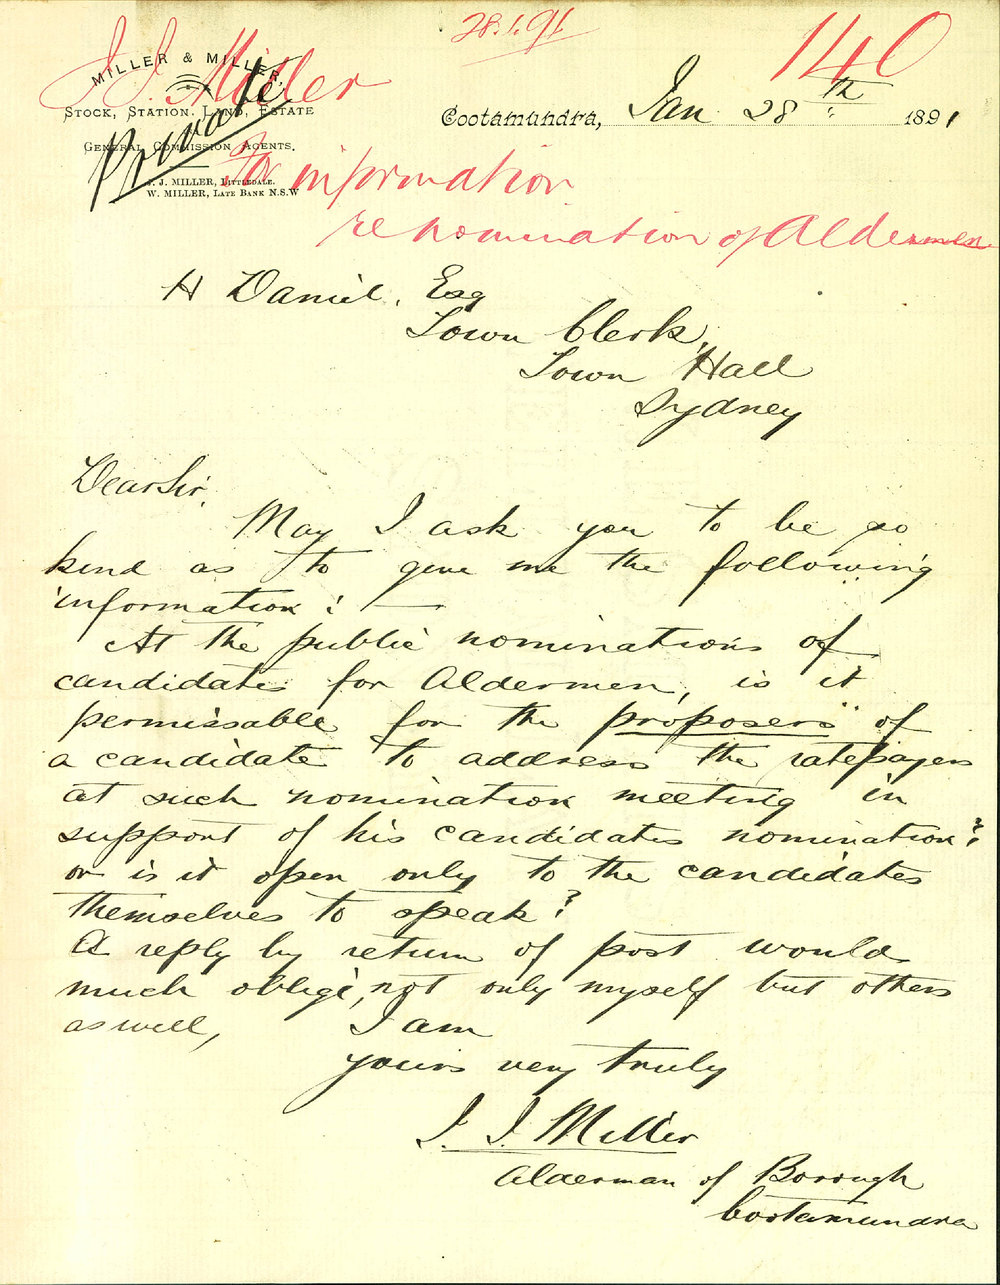 28.1.91
140
J. J. Miller
MILLER & MILLER,
STOCK, STATION, LAND, ESTATE
GENERAL COMMISSION AGENTS.
J. J. MILLER, LITTLEDALE.
W. MILLER, LATE BANK N.S.W
Private
Cootamundra, Jan 28th 1891
for information
re nomination of Aldermen
H Daniel, Esq
Town Clerk,
Town Hall
Sydney
Dear Sir,
May I ask you to be so
kind as to give me the following
information: —
At the public nominations of
candidates for Aldermen, is it
permissable for the "proposers" of
a candidate to address the ratepayers
at such nomination meeting in
support of his candidates nomination?
or is it open only to the candidates
themselves to speak?
A reply by return of post would
much oblige, not only myself but others
as well,
I am
yours very truly
J. J. Miller
Alderman of Borough
Cootamundra